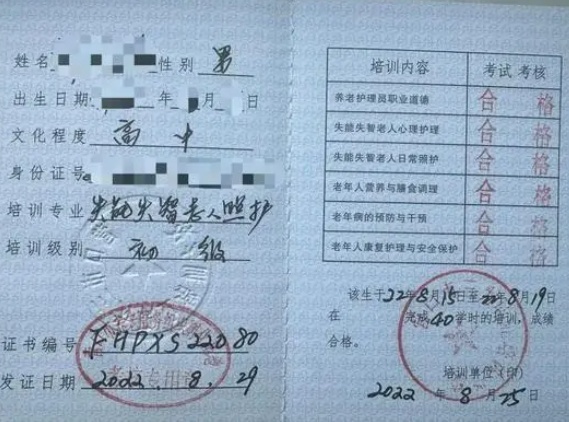 姓名 性别 男
出生日期 年 月 日
文化程度 高中
身份证号
培训专业 失能失智老人照护
培训级别 初级
证书编号 FHPXS22080
发证日期 2022.8.29
考核专用章
培训内容 考试 考核
养老护理员职业道德 合格
失能失智老人心理护理 合格
失能失智老人日常照护 合格
老年人营养与膳食调理 合格
老年病的预防与干预 合格
老年人康复护理与安全保护 合格
该生于22年8月15日至22年8月19日
在 完成40学时的培训,成绩
合格。
培训单位(印)
2022年8月25日